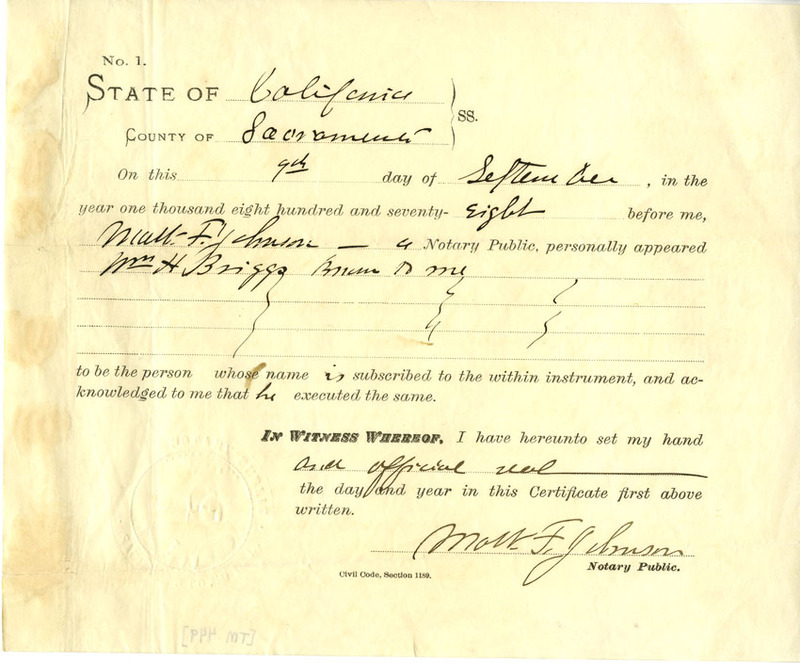 No. 1.
STATE OF California
SS.
COUNTY OF Sacramento
On this 9th day of September, in the
year one thousand eight hundred and seventy- Eight before me,
Matt. F. Johnson — a Notary Public, personally appeared
Wm H Briggs known to me
to be the person whose name is subscribed to the within instrument, and ac-
knowledged to me that he executed the same.
IN WITNESS WHEREOF, I have hereunto set my hand
and official seal
the day and year in this Certificate first above
written.
Matt. F. Johnson
Notary Public.
Civil Code, Section 1189.